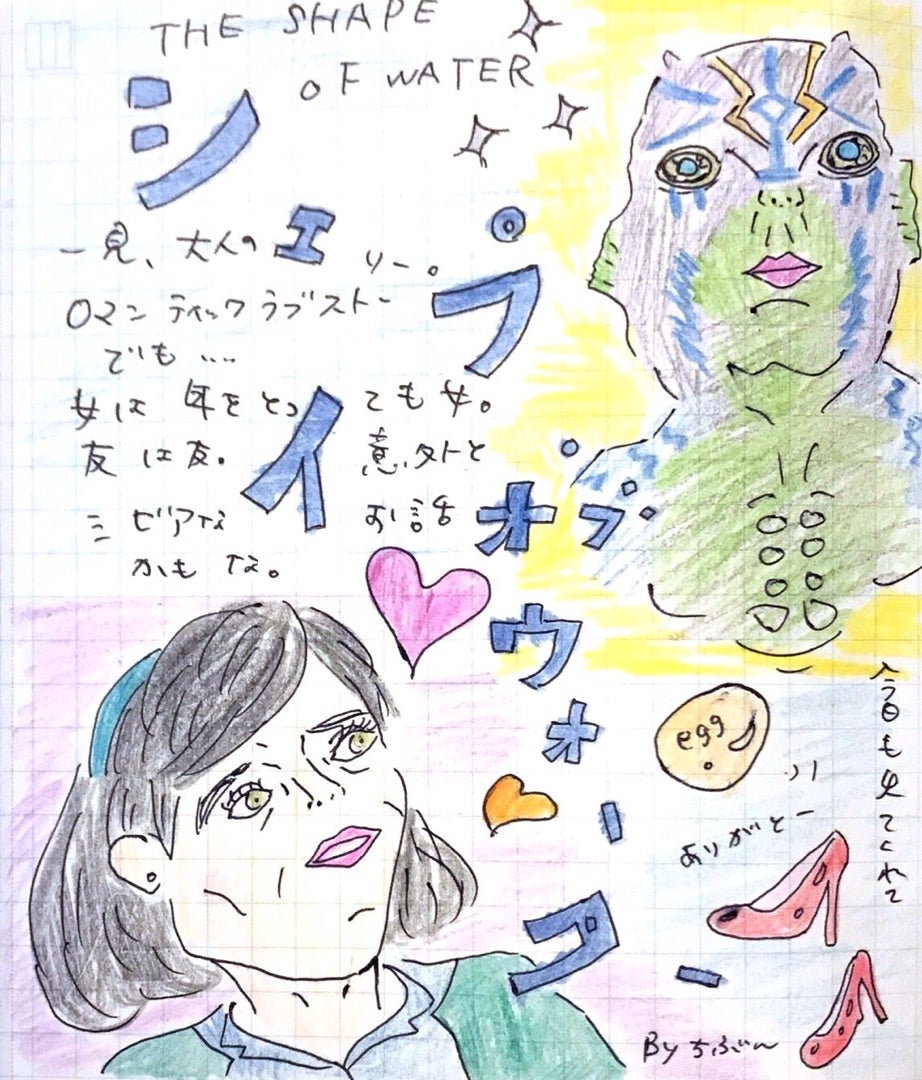 THE SHAPE
OF WATER
シェイプ
オブ
ウォー
一見、大人の
ロマンティックラブストーリー。
でも....
女は年をとっても女。
友は友。意外と
シビアなお話
かもな。
egg
今日も見てくれて
ありがとー
By